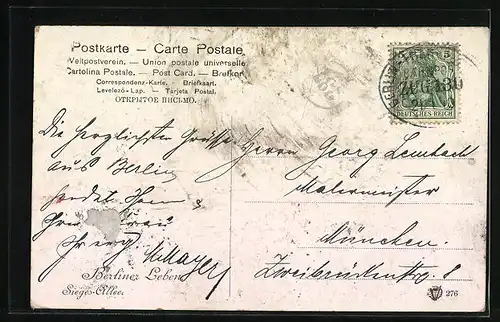 Postkarte — Carte Postale
Weltpostverein. — Union postale universelle
Cartolina Postale. — Post Card. — Brefkort
Correspondenz-Karte. — Briefkaart.
Levelező-Lap. — Tarjeta Postal.
ОТКРЫТОЕ ПИСЬМО.
5
ZUG 130
DEUTSCHES REICH
Die herzlichsten Grüsse
aus Berlin
sendet Ihnen &
Ihrer Frau
Ihr erg. Mayer
Herrn Georg Lembach
Malermeister
München.
Zweibrückenstr. 8
Berliner Leben
Sieges-Allee
276